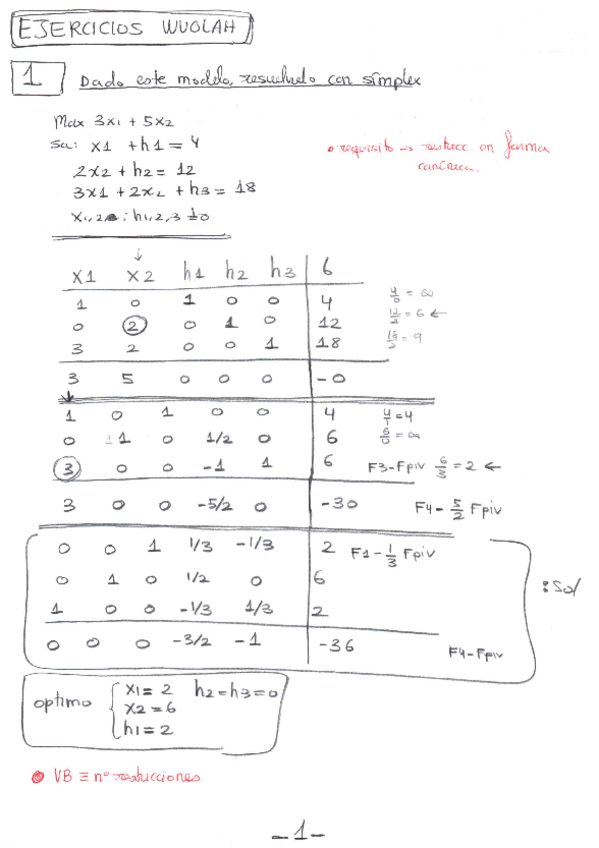 EJERCICIOS WUOLAH
1 Dado este modelo, resuelvelo con simplex
Max 3x1 + 5x2
Sa: x1 + h1 = 4
2x2 + h2 = 12
3x1 + 2x2 + h3 = 18
requisito → restricc. en forma
canónica.
x1 x2 h1 h2 h3 6
1 0 1 0 0 4 4/0 = ∞
0 2 0 1 0 12 12/2 = 6 ←
3 2 0 0 1 18 18/2 = 9
3 5 0 0 0 -0
1 0 1 0 0 4 4/1 = 4
0 1 0 1/2 0 6 6/0 = ∞
3 0 0 -1 1 6 F3-Fpiv 6/3 = 2 ←
3 0 0 -5/2 0 -30 F4 - 5/2 Fpiv
0 0 1 1/3 -1/3 2 F1 - 1/3 Fpiv
0 1 0 1/2 0 6
1 0 0 -1/3 1/3 2
: Sol
0 0 0 -3/2 -1 -36 F4-Fpiv
optimo { x1 = 2 h2 = h3 = 0
x2 = 6
h1 = 2
VB ≡ nº restricciones.
-1-